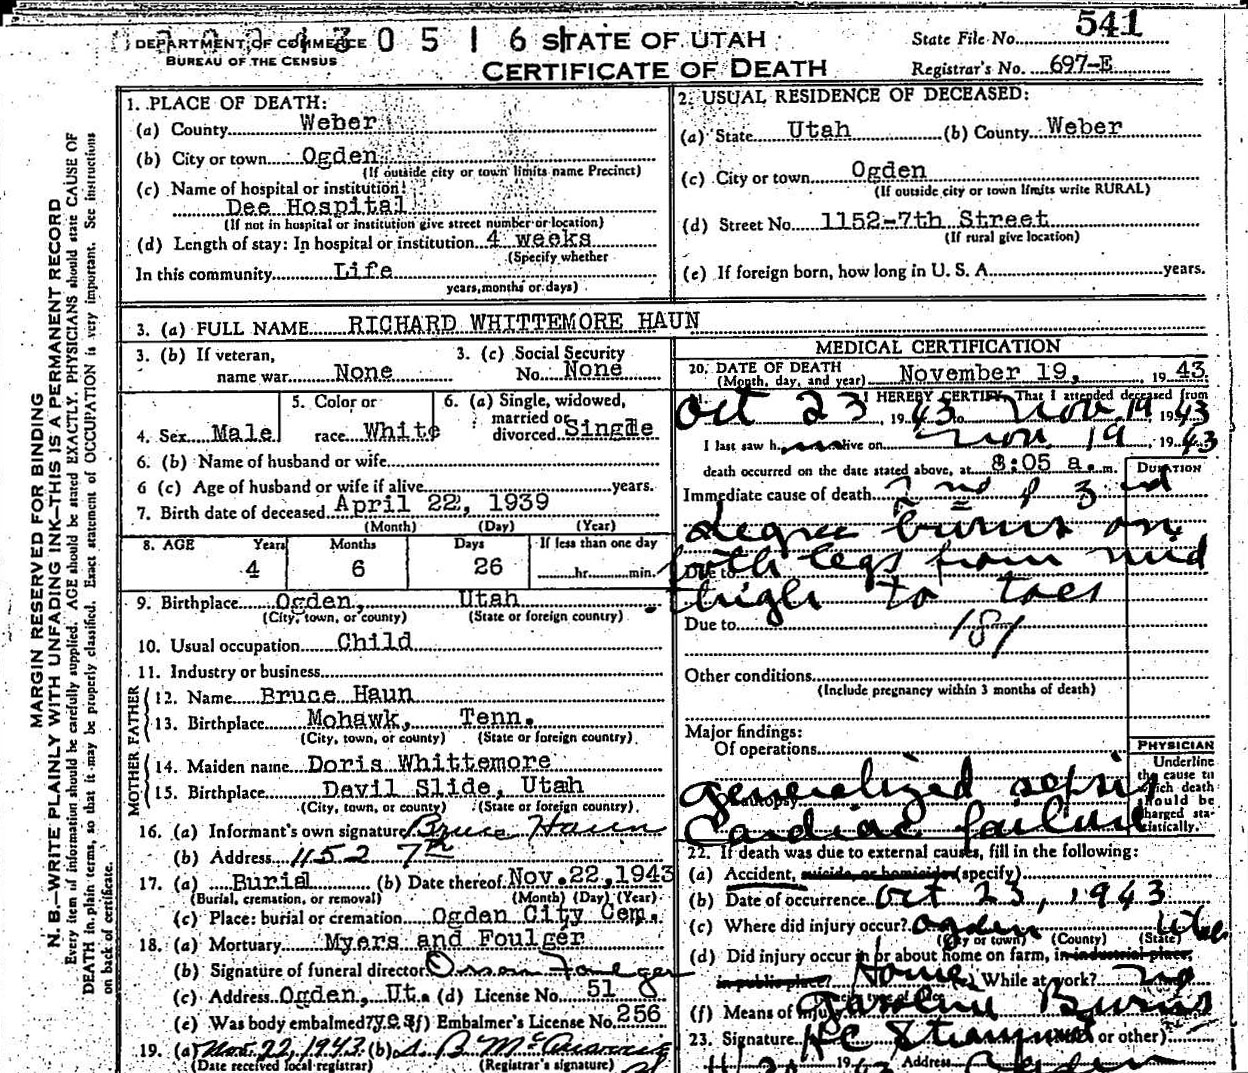 DEPARTMENT OF COMMERCE
BUREAU OF THE CENSUS
3 0 5 1 6
STATE OF UTAH
CERTIFICATE OF DEATH
State File No. 541
Registrar's No. 697-E
MARGIN RESERVED FOR BINDING
N. B.—WRITE PLAINLY WITH UNFADING INK—THIS IS A PERMANENT RECORD
Every item of information should be carefully supplied. AGE should be stated EXACTLY. PHYSICIANS should state CAUSE OF
DEATH in plain terms, so that it may be properly classified. Exact statement of OCCUPATION is very important. See instructions
on back of certificate.
1. PLACE OF DEATH:
(a) County Weber
(b) City or town Ogden
(If outside city or town limits name Precinct)
(c) Name of hospital or institution:
Dee Hospital
(If not in hospital or institution give street number or location)
(d) Length of stay: In hospital or institution 4 weeks
(Specify whether
In this community Life
years, months or days)
2. USUAL RESIDENCE OF DECEASED:
(a) State Utah (b) County Weber
(c) City or town Ogden
(If outside city or town limits write RURAL)
(d) Street No. 1152-7th Street
(If rural give location)
(e) If foreign born, how long in U. S. A. years.
3. (a) FULL NAME RICHARD WHITTEMORE HAUN
3. (b) If veteran,
name war None
3. (c) Social Security
No. None
4. Sex Male
5. Color or
race White
6. (a) Single, widowed,
married or
divorced Single
6. (b) Name of husband or wife
6 (c) Age of husband or wife if alive years.
7. Birth date of deceased April 22, 1939
(Month) (Day) (Year)
8. AGE Years Months Days If less than one day
4 6 26 hr. min.
9. Birthplace Ogden, Utah
(City, town, or county) (State or foreign country)
10. Usual occupation Child
11. Industry or business
FATHER
12. Name Bruce Haun
13. Birthplace Mohawk, Tenn.
(City, town, or county) (State or foreign country)
MOTHER
14. Maiden name Doris Whittemore
15. Birthplace Devil Slide, Utah
(City, town, or county) (State or foreign country)
16. (a) Informant's own signature Bruce Haun
(b) Address 1152 7th
17. (a) Burial (b) Date thereof Nov. 22, 1943
(Burial, cremation, or removal) (Month) (Day) (Year)
(c) Place: burial or cremation Ogden City Cem.
18. (a) Mortuary Myers and Foulger
(b) Signature of funeral director Orson Foulger
(c) Address Ogden, Ut. (d) License No. 51
(e) Was body embalmed? yes (f) Embalmer's License No. 256
19. (a) Nov. 22, 1943 (b)
(Date received local registrar) (Registrar's signature)
MEDICAL CERTIFICATION
20. DATE OF DEATH
(Month, day, and year) November 19, 1943.
I HEREBY CERTIFY, That I attended deceased from
Oct 23, 1943 to Nov 19 1943
I last saw him alive on Nov. 19, 1943
death occurred on the date stated above, at 8:05 a. m.
DURATION
Immediate cause of death 2nd & 3rd
degree burns on
Due to both legs from mid
thigh to toes
Due to
181
Other conditions
(Include pregnancy within 3 months of death)
Major findings:
Of operations
generalized sepsis
Of autopsy
Cardiac failure
PHYSICIAN
Underline
the cause to
which death
should be
charged sta-
tistically.
22. If death was due to external causes, fill in the following:
(a) Accident, suicide, or homicide (specify)
(b) Date of occurrence Oct 23, 1943
(c) Where did injury occur? Ogden Utah
(City or town) (County) (State)
(d) Did injury occur in or about home on farm, in industrial place,
in public place? Home While at work? no
(f) Means of injury Gasoline Burns
23. Signature HC (or other)
1943 Address Ogden